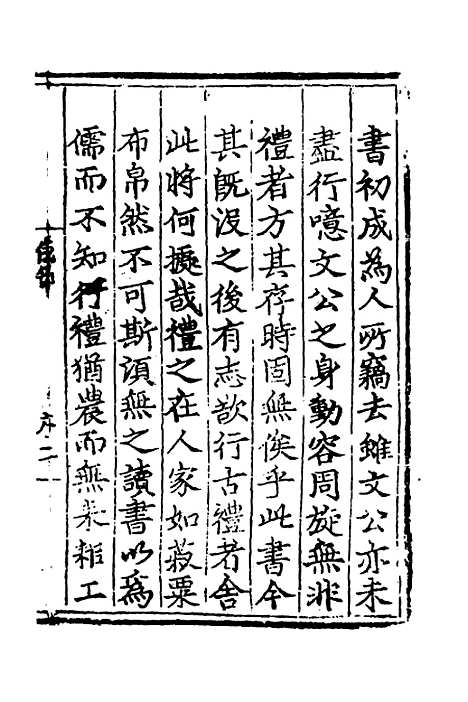 書初成爲人所竊去雖文公亦未
盡行噫文公之身動容周旋無非
禮者方其存時固無俟乎此書今
其旣没之後有志欲行古禮者舍
此將何據哉禮之在人家如菽粟
布帛然不可斯湏無之讀書以爲
儒而不知行禮猶農而無耒耜工
序二